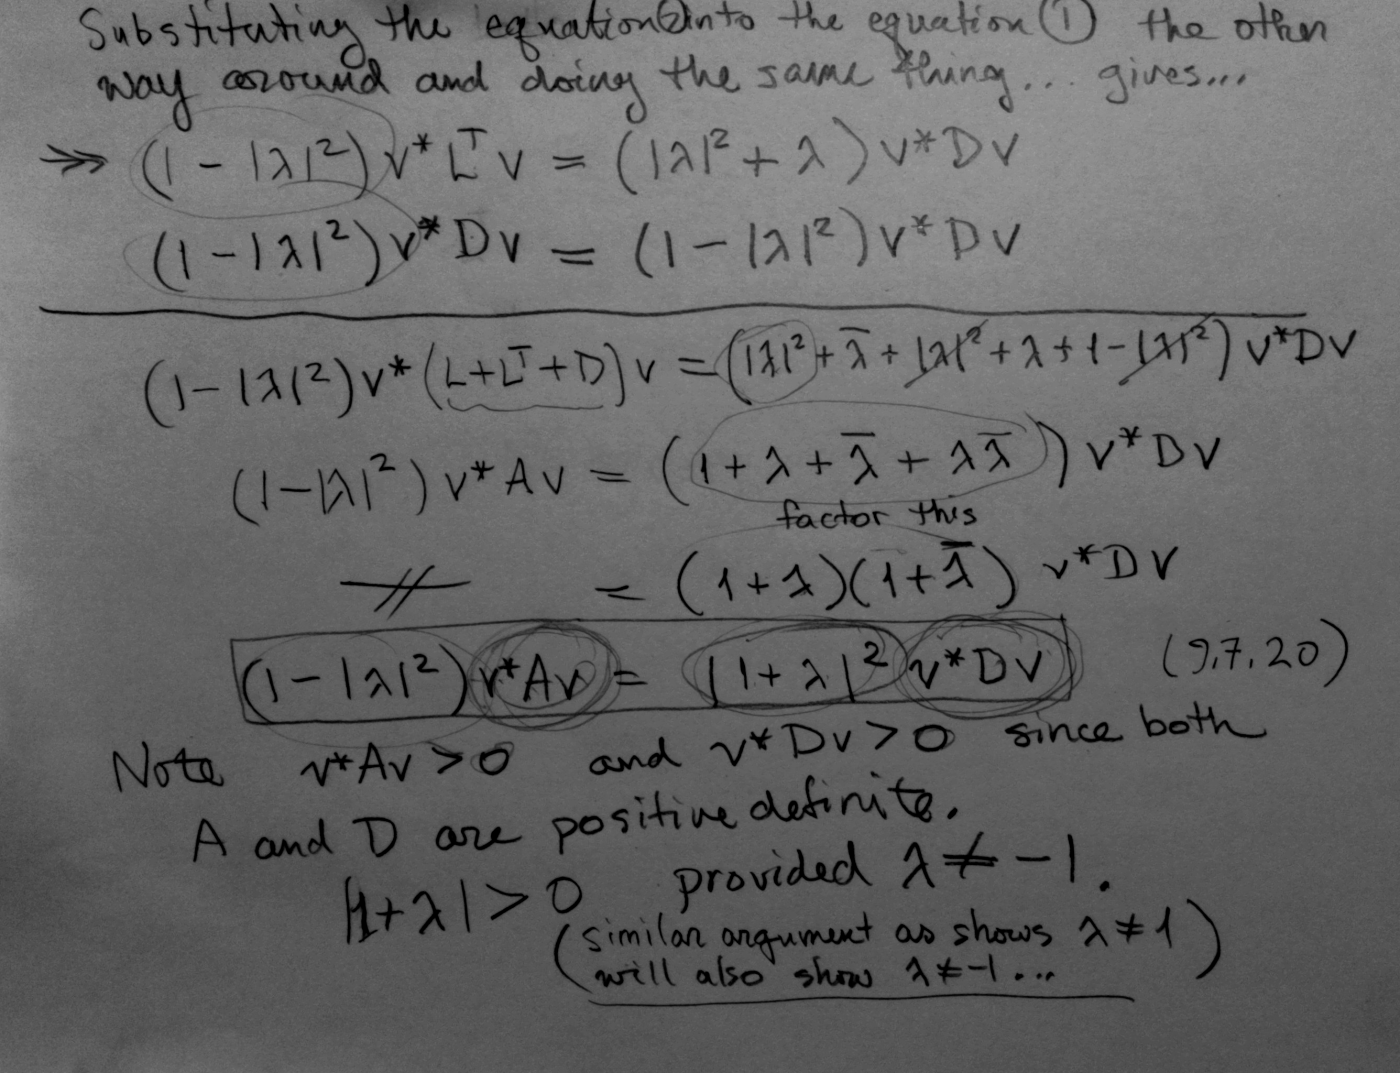 Substituting the equation ② into the equation ① the other
way around and doing the same thing... gives...
≫ (1 - |λ|²) v* Lᵀ v = (|λ|² + λ) v* D v
(1 - |λ|²) v* D v = (1 - |λ|²) v* D v
(1 - |λ|²) v* (L + Lᵀ + D) v = (|λ|² + λ̄ + |λ|² + λ + 1 - |λ|²) v* D v
(1 - |λ|²) v* A v = (1 + λ + λ̄ + λλ̄) v* D v
factor this
= (1 + λ)(1 + λ̄) v* D v
(1 - |λ|²) v* A v = |1 + λ|² v* D v (9.7.20)
Note v* A v > 0 and v* D v > 0 since both
A and D are positive definite.
|1 + λ| > 0 provided λ ≠ -1.
(similar argument as shows λ ≠ 1
will also show λ ≠ -1 ...)